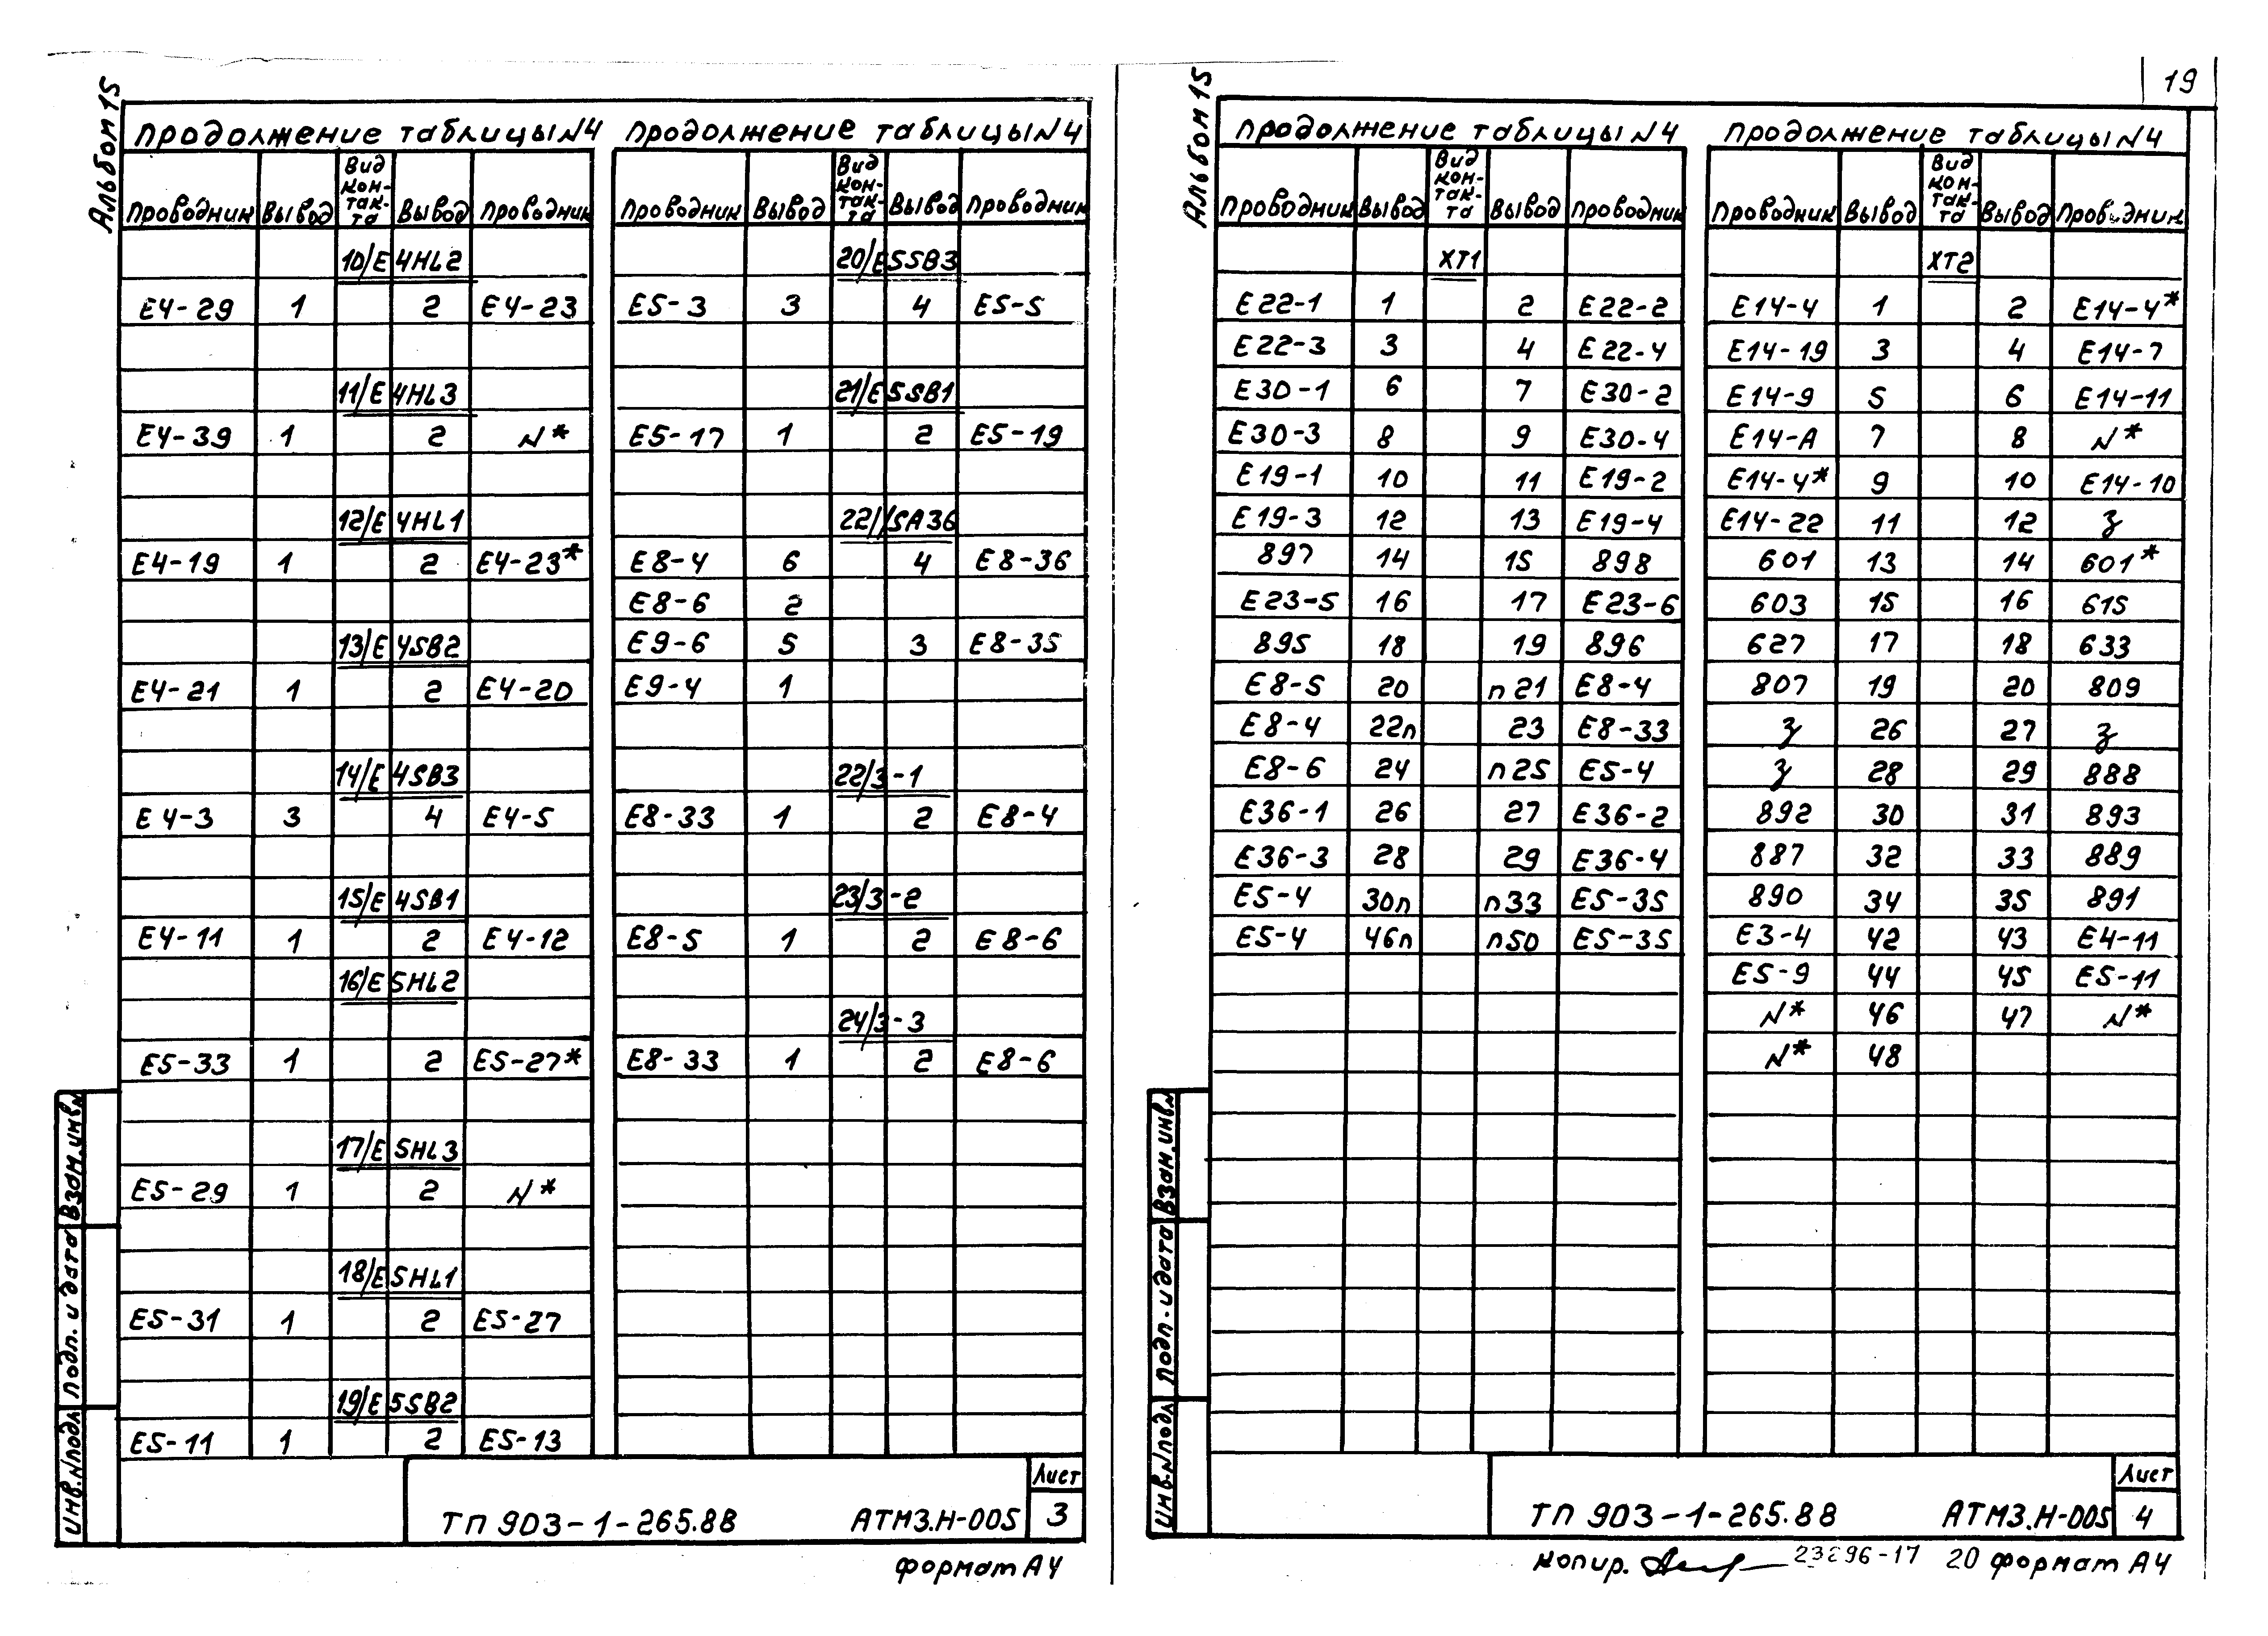 19
Альбом 15
Продолжение таблицы N4
Проводник Вывод Вид контакта Вывод Проводник
10/Е4HL2
Е4-29 1 2 Е4-23
11/Е4HL3
Е4-39 1 2 N*
12/Е4HL1
Е4-19 1 2 Е4-23*
13/Е4SB2
Е4-21 1 2 Е4-20
14/Е4SB3
Е4-3 3 4 Е4-5
15/Е4SB1
Е4-11 1 2 Е4-12
16/Е5HL2
Е5-33 1 2 Е5-27*
17/Е5HL3
Е5-29 1 2 N*
18/Е5HL1
Е5-31 1 2 Е5-27
19/Е5SB2
Е5-11 1 2 Е5-13
Продолжение таблицы N4
Проводник Вывод Вид контакта Вывод Проводник
20/Е5SB3
Е5-3 3 4 Е5-5
21/Е5SB1
Е5-17 1 2 Е5-19
22//SA36
Е8-4 6 4 Е8-36
Е8-6 2
Е9-6 5 3 Е8-35
Е9-4 1
22/3-1
Е8-33 1 2 Е8-4
23/3-2
Е8-5 1 2 Е8-6
24/3-3
Е8-33 1 2 Е8-6
Взам. инв. N
Подп. и дата
Инв. N подл
ТП 903-1-265.88 АТМ3.Н-005
Лист
3
формат А4
Альбом 15
Продолжение таблицы N4
Проводник Вывод Вид контакта Вывод Проводник
XT1
Е22-1 1 2 Е22-2
Е22-3 3 4 Е22-4
Е30-1 6 7 Е30-2
Е30-3 8 9 Е30-4
Е19-1 10 11 Е19-2
Е19-3 12 13 Е19-4
897 14 15 898
Е23-5 16 17 Е23-6
895 18 19 896
Е8-5 20 п21 Е8-4
Е8-4 22п 23 Е8-33
Е8-6 24 п25 Е5-4
Е36-1 26 27 Е36-2
Е36-3 28 29 Е36-4
Е5-4 30п п33 Е5-35
Е5-4 46п п50 Е5-35
Продолжение таблицы N4
Проводник Вывод Вид контакта Вывод Проводник
XT2
Е14-4 1 2 Е14-4*
Е14-19 3 4 Е14-7
Е14-9 5 6 Е14-11
Е14-А 7 8 N*
Е14-4* 9 10 Е14-10
Е14-22 11 12 З
601 13 14 601*
603 15 16 615
627 17 18 633
807 19 20 809
З 26 27 З
З 28 29 888
892 30 31 893
887 32 33 889
890 34 35 891
Е3-4 42 43 Е4-11
Е5-9 44 45 Е5-11
N* 46 47 N*
N* 48
Взам. инв. N
Подп. и дата
Инв. N подл
ТП 903-1-265.88 АТМ3.Н-005
Лист
4
копир. 20 формат А4